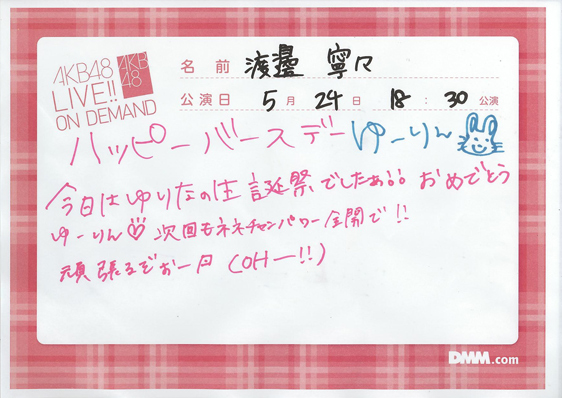 AKB48
LIVE!!
ON DEMAND
AKB
48
名前 渡邊 寧々
公演日 5月24日 18:30公演
ハッピーバースデーゆーりん
今日はゆりなの生誕祭でしたぁ!! おめでとう
ゆーりん♡ 次回もネネチャンパワー全開で!!
頑張るぞぉー (OHー!!)
DMM.com